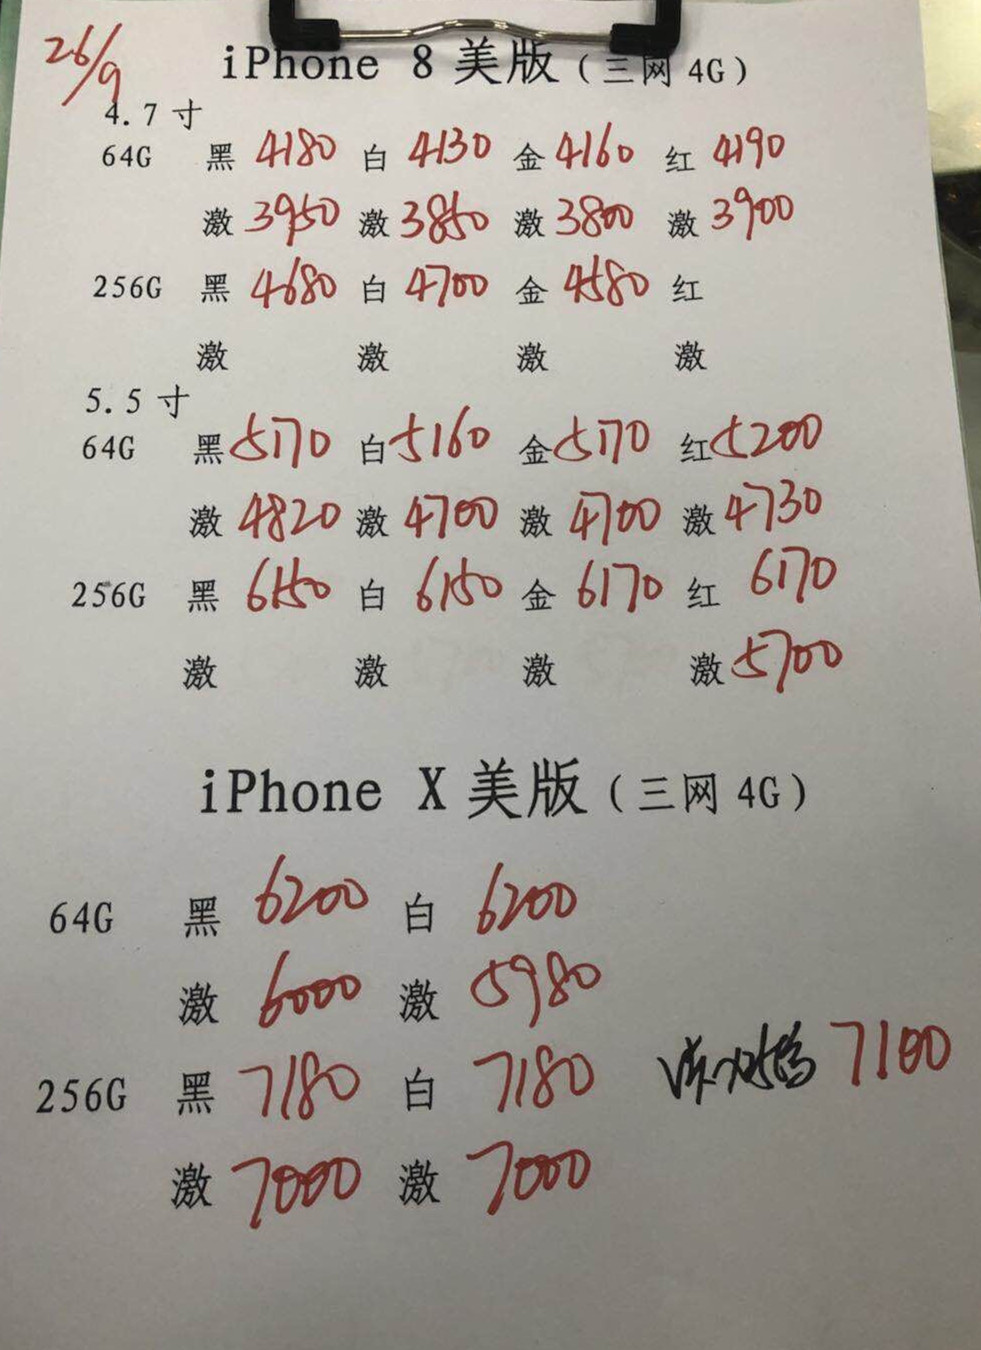 26/9
iPhone 8 美版（三网 4G）
4.7 寸
64G 黑 4180 白 4130 金 4160 红 4190
激 3950 激 3850 激 3800 激 3900
256G 黑 4680 白 4700 金 4580 红
激 激 激 激
5.5 寸
64G 黑 5170 白 5160 金 5170 红 5200
激 4820 激 4700 激 4700 激 4730
256G 黑 6150 白 6150 金 6170 红 6170
激 激 激 激 5700
iPhone X 美版（三网 4G）
64G 黑 6200 白 6200
激 6000 激 5980
256G 黑 7180 白 7180 7100
激 7000 激 7000